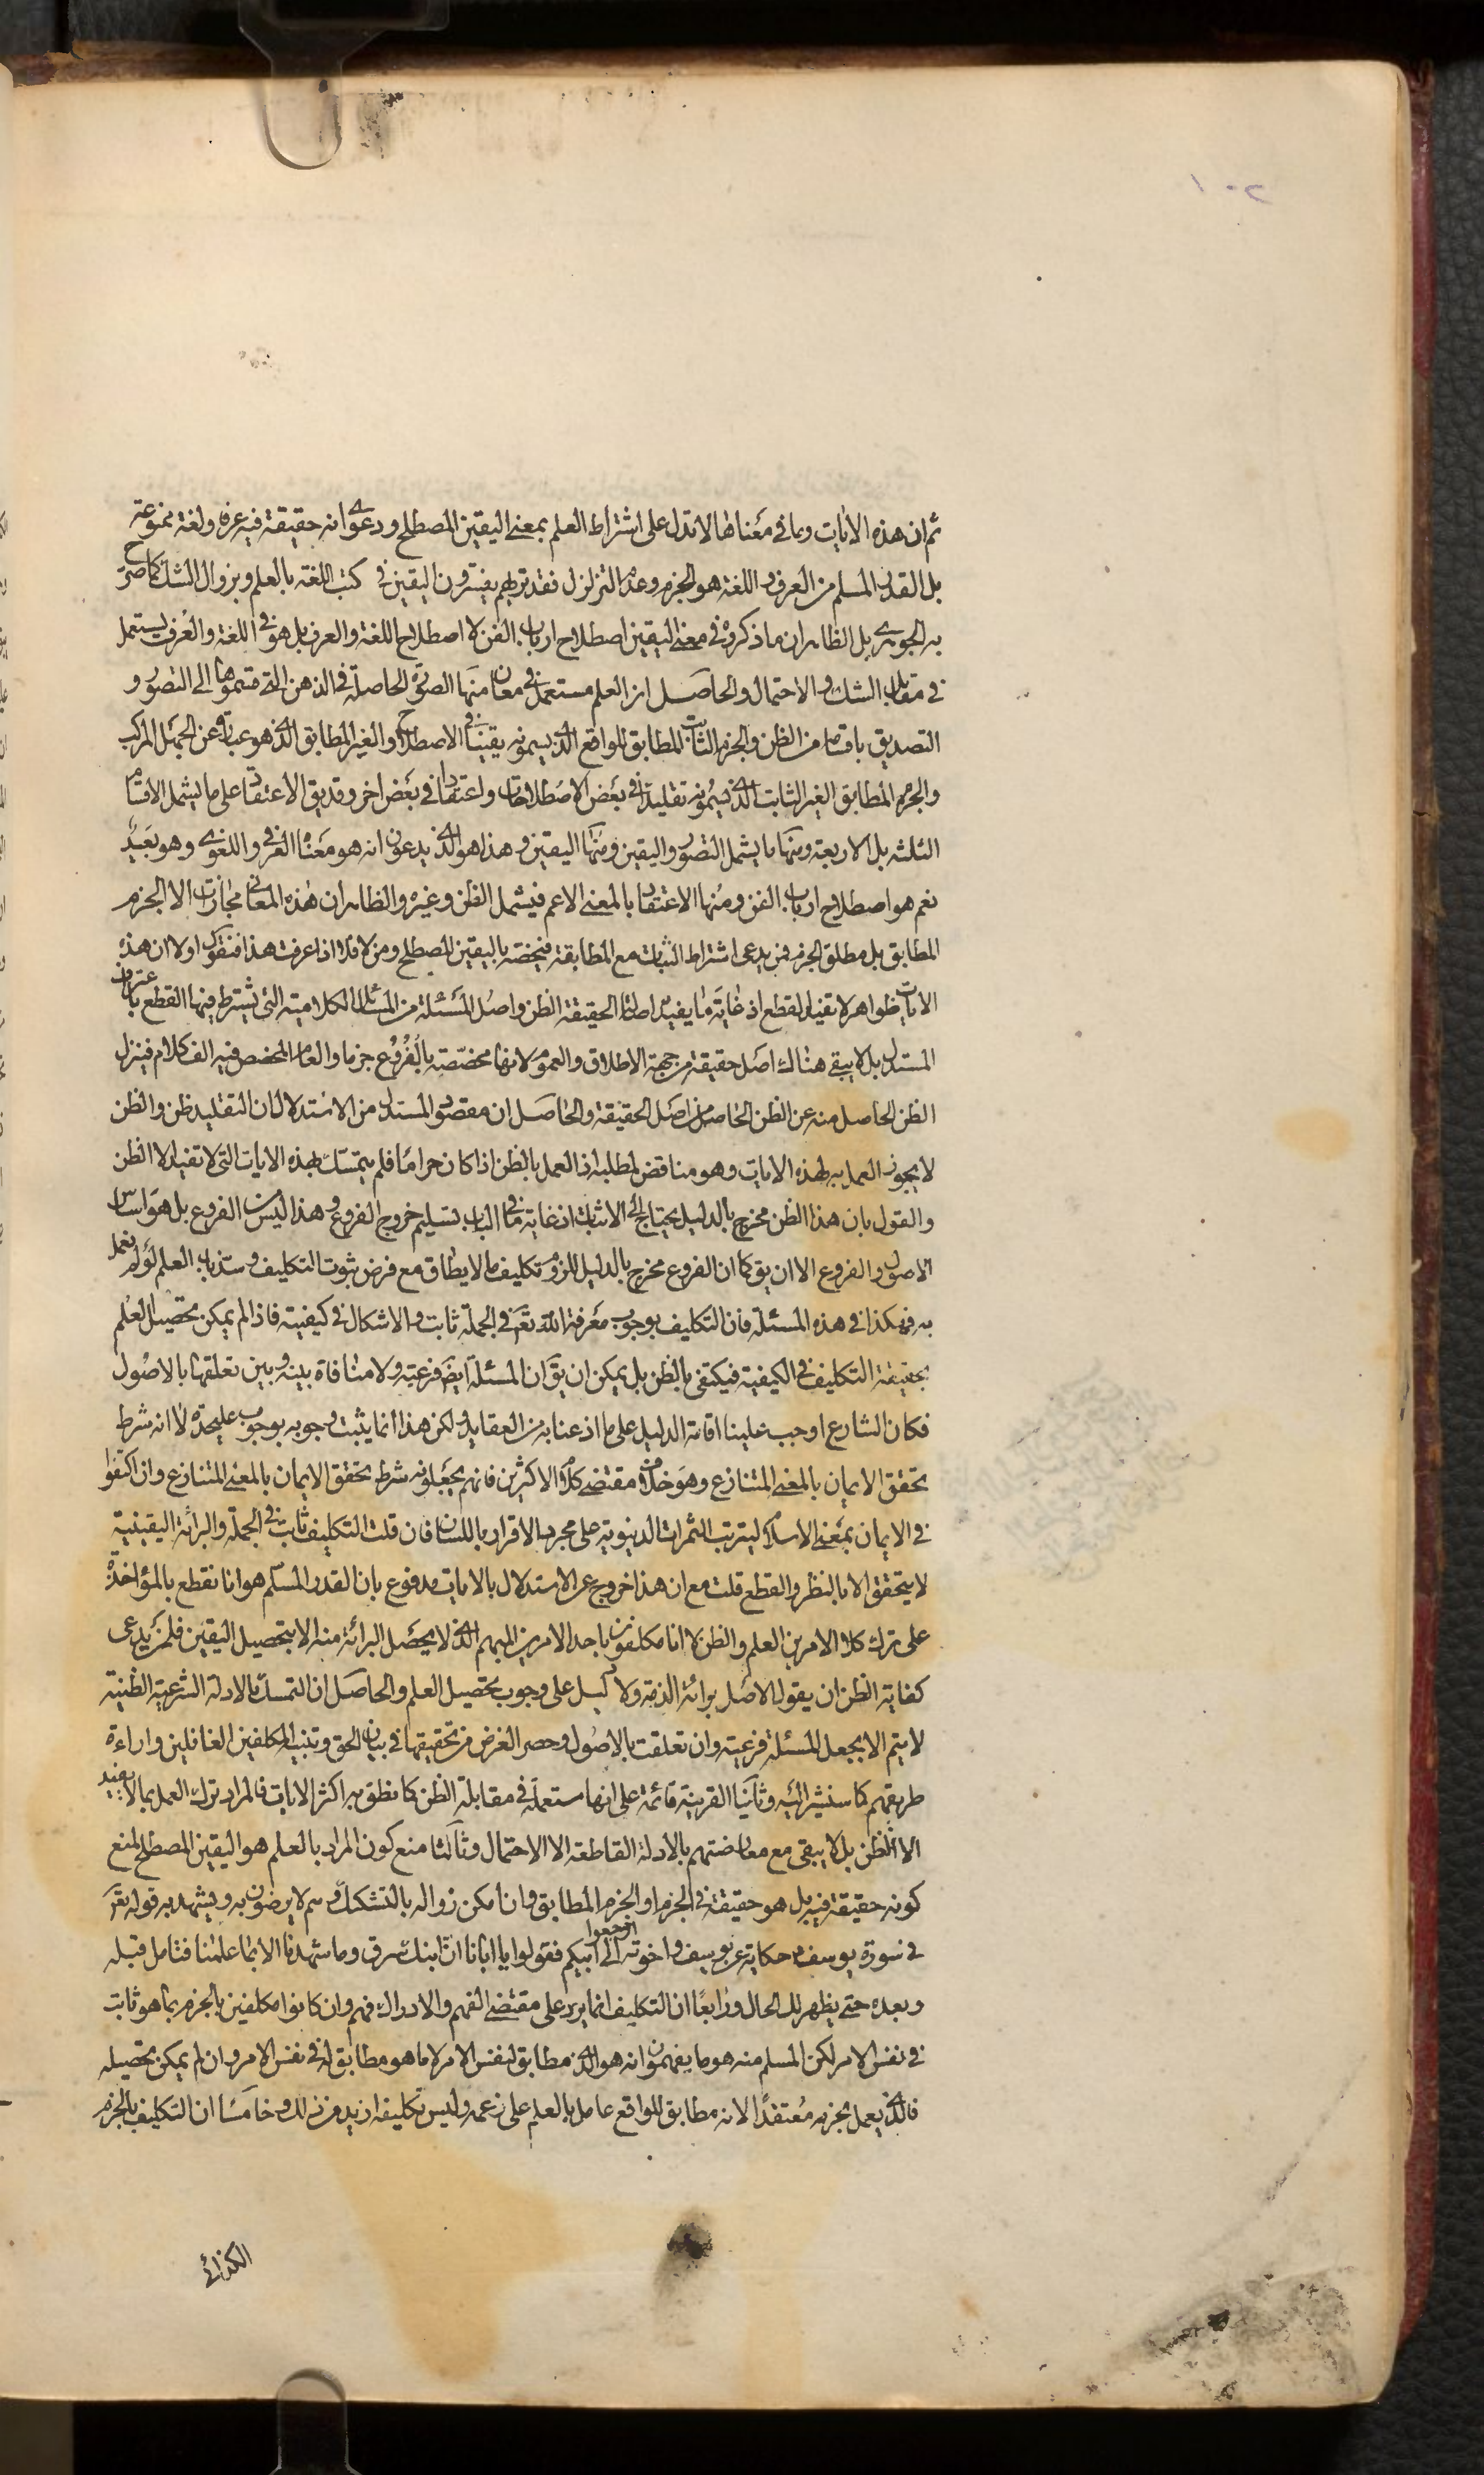 ١٠٢
ثم ان هذه الايات وما في معناها لا تدل على اشتراط العلم بمعنى اليقين المصطلح ودعوى انه حقيقة فيه عرفا ولغة ممنوعة
بل القدر المسلم من العرف واللغة هو الجزم وعدم التزلزل فقد تريهم يفسرون اليقين في كتب اللغة بالعلم وبزوال الشك كما صرح
به الجوهرى بل الظاهر ان ما ذكروه في معنى اليقين اصطلاح ارباب الفن لا اصطلاح اللغة والعرف بل هو في اللغة والعرف يستعمل
في مقابل الشك والاحتمال والحاصل ان العلم مستعمل في معان منها الصورة الحاصلة في الذهن التى قسموها الى التصور و
التصديق باقسامه من الظن والجزم الثابت المطابق للواقع الذى يسمونه يقينا في الاصطلاح والغير المطابق الذى هو عبارة عن الجهل المركب
والجزم المطابق الغير الثابت الذى يسمونه تقليدا في بعض الاصطلاحات واعتقادا في بعض اخر وقد يق الاعتقاد على ما يشمل الاقسام
الثلثة بل الاربعة ومنها ما يشمل التصور واليقين ومنها اليقين وهذا هو الذى يدعون انه هو معناه العرفى واللغوى وهو بعيد
نعم هو اصطلاح ارباب الفن ومنها الاعتقاد بالمعنى الاعم فيشمل الظن وغيره والظاهر ان هذه المعانى مجازات الا الجزم
المطابق بل مطلق الجزم فمن يدعى اشتراط الثبات مع المطابقة فيخصه باليقين المصطلح ومن لا فلا اذا عرفت هذا فنقول اولا ان هذه
الايات ظواهر لا تفيد القطع اذ غاية ما يفيده اصالة الحقيقة الظن واصل المسئلة من المسائل الكلامية التى يشترط فيها القطع باعتراف
المستدل بل لا يبقى هناك اصل حقيقة من جهة الاطلاق والعموم لانها مخصصة بالفروع جزما والعام المخصص فيه الف كلام فينزل
الظن الحاصل منه عن الظن الحاصل من اصل الحقيقة والحاصل ان مقصود المستدل من الاستدلال ان التقليد ظن والظن
لا يجوز العمل به لهذه الايات وهو مناقض لمطلبه اذ العمل بالظن اذا كان حراما فلم يتمسك بهذه الايات التى لا تفيد الا الظن
والقول بان هذا الظن مخرج بالدليل يحتاج الى الاثبات اذ غاية ما في الباب تسليم خروج الفروع وهذا ليس من الفروع بل هو اساس
الاصول والفروع الا ان يق كما ان الفروع مخرج بالدليل للزوم تكليف ما لا يطاق مع فرض ثبوت التكليف وسد باب العلم لو لم نعمل
به فهكذا في هذه المسئلة فان التكليف بوجوب معرفة الله تعم في الجملة ثابت والاشكال في كيفيته فاذا لم يمكن تحصيل العلم
بحقيقة التكليف في الكيفية فيكتفى بالظن بل يمكن ان يق ان المسئلة ايضا فرعية ولا منافاة بينه وبين تعلقها بالاصول
فكان الشارع اوجب علينا اقامة الدليل على ما اذعنا به من العقايد ولكن هذا انما يثبت وجوبه بوجوب عليحدة لا انه شرط
تحقق الايمان بالمعنى المتنازع وهو خلاف مقتضى كلام الاكثرين فانهم يجعلونه شرط تحقق الايمان بالمعنى المتنازع وان اكتفوا
في الايمان بمعنى الاسلام ليترتب الثمرات الدنيوية على مجرد الاقرار باللسان فان قلت التكليف ثابت في الجملة والبرائة اليقينية
لا يتحقق الا بالنظر والقطع قلت مع ان هذا خروج عن الاستدلال بالايات مدفوع بان القدر المسلم هو انا نقطع بالمؤاخذة
على ترك كلا الامرين العلم والظن لا انا مكلفون باحد الامرين المبهم الذى لا يحصل البرائة منه الا بتحصيل اليقين فلمن يدعى
كفاية الظن ان يقول الاصل برائة الذمة ولا دليل على وجوب تحصيل العلم والحاصل ان التمسك بالادلة الشرعية الظنية
لا يتم الا بجعل المسئلة فرعية وان تعلقت بالاصول وحصر الغرض من تحقيقها في بيان الحق وتنبيه المكلفين الغافلين واراءة
طريقهم كما سنشير اليه وثانيا القرينة قائمة على انها مستعملة في مقابلة الظن كما نطق به اكثر الايات فالمراد ترك العمل بما لا يفيد
الا الظن بل لا يبقى مع معارضتهم بالادلة القاطعة الا الاحتمال وثالثا منع كون المراد بالعلم هو اليقين المصطلح لمنع
كونه حقيقة فيه بل هو حقيقة في الجزم او الجزم المطابق وان امكن زواله بالتشكيك وهم لا يرضون به ويشهد به قوله تعم
في سورة يوسف حكاية عن يوسف واخوته ارجعوا الى ابيكم فقولوا يا ابانا ان ابنك سرق وما شهدنا الا بما علمنا فتامل قبله
وبعده حتى يظهر لك الحال ورابعا ان التكليف انما يرد على مقتضى الفهم والادراك فهم وان كانوا مكلفين بالجزم بما هو ثابت
في نفس الامر لكن المسلم منه هو ما يفهمون انه هو الذى مطابق لنفس الامر لا ما هو مطابق له في نفس الامر وان لم يمكن تحصيله
فالذى يعمل بجزمه معتقدا لانه مطابق للواقع عامل بالعلم على زعمه وليس تكليفه ازيد من ذلك وخامسا ان التكليف بالجزم
الكذائى